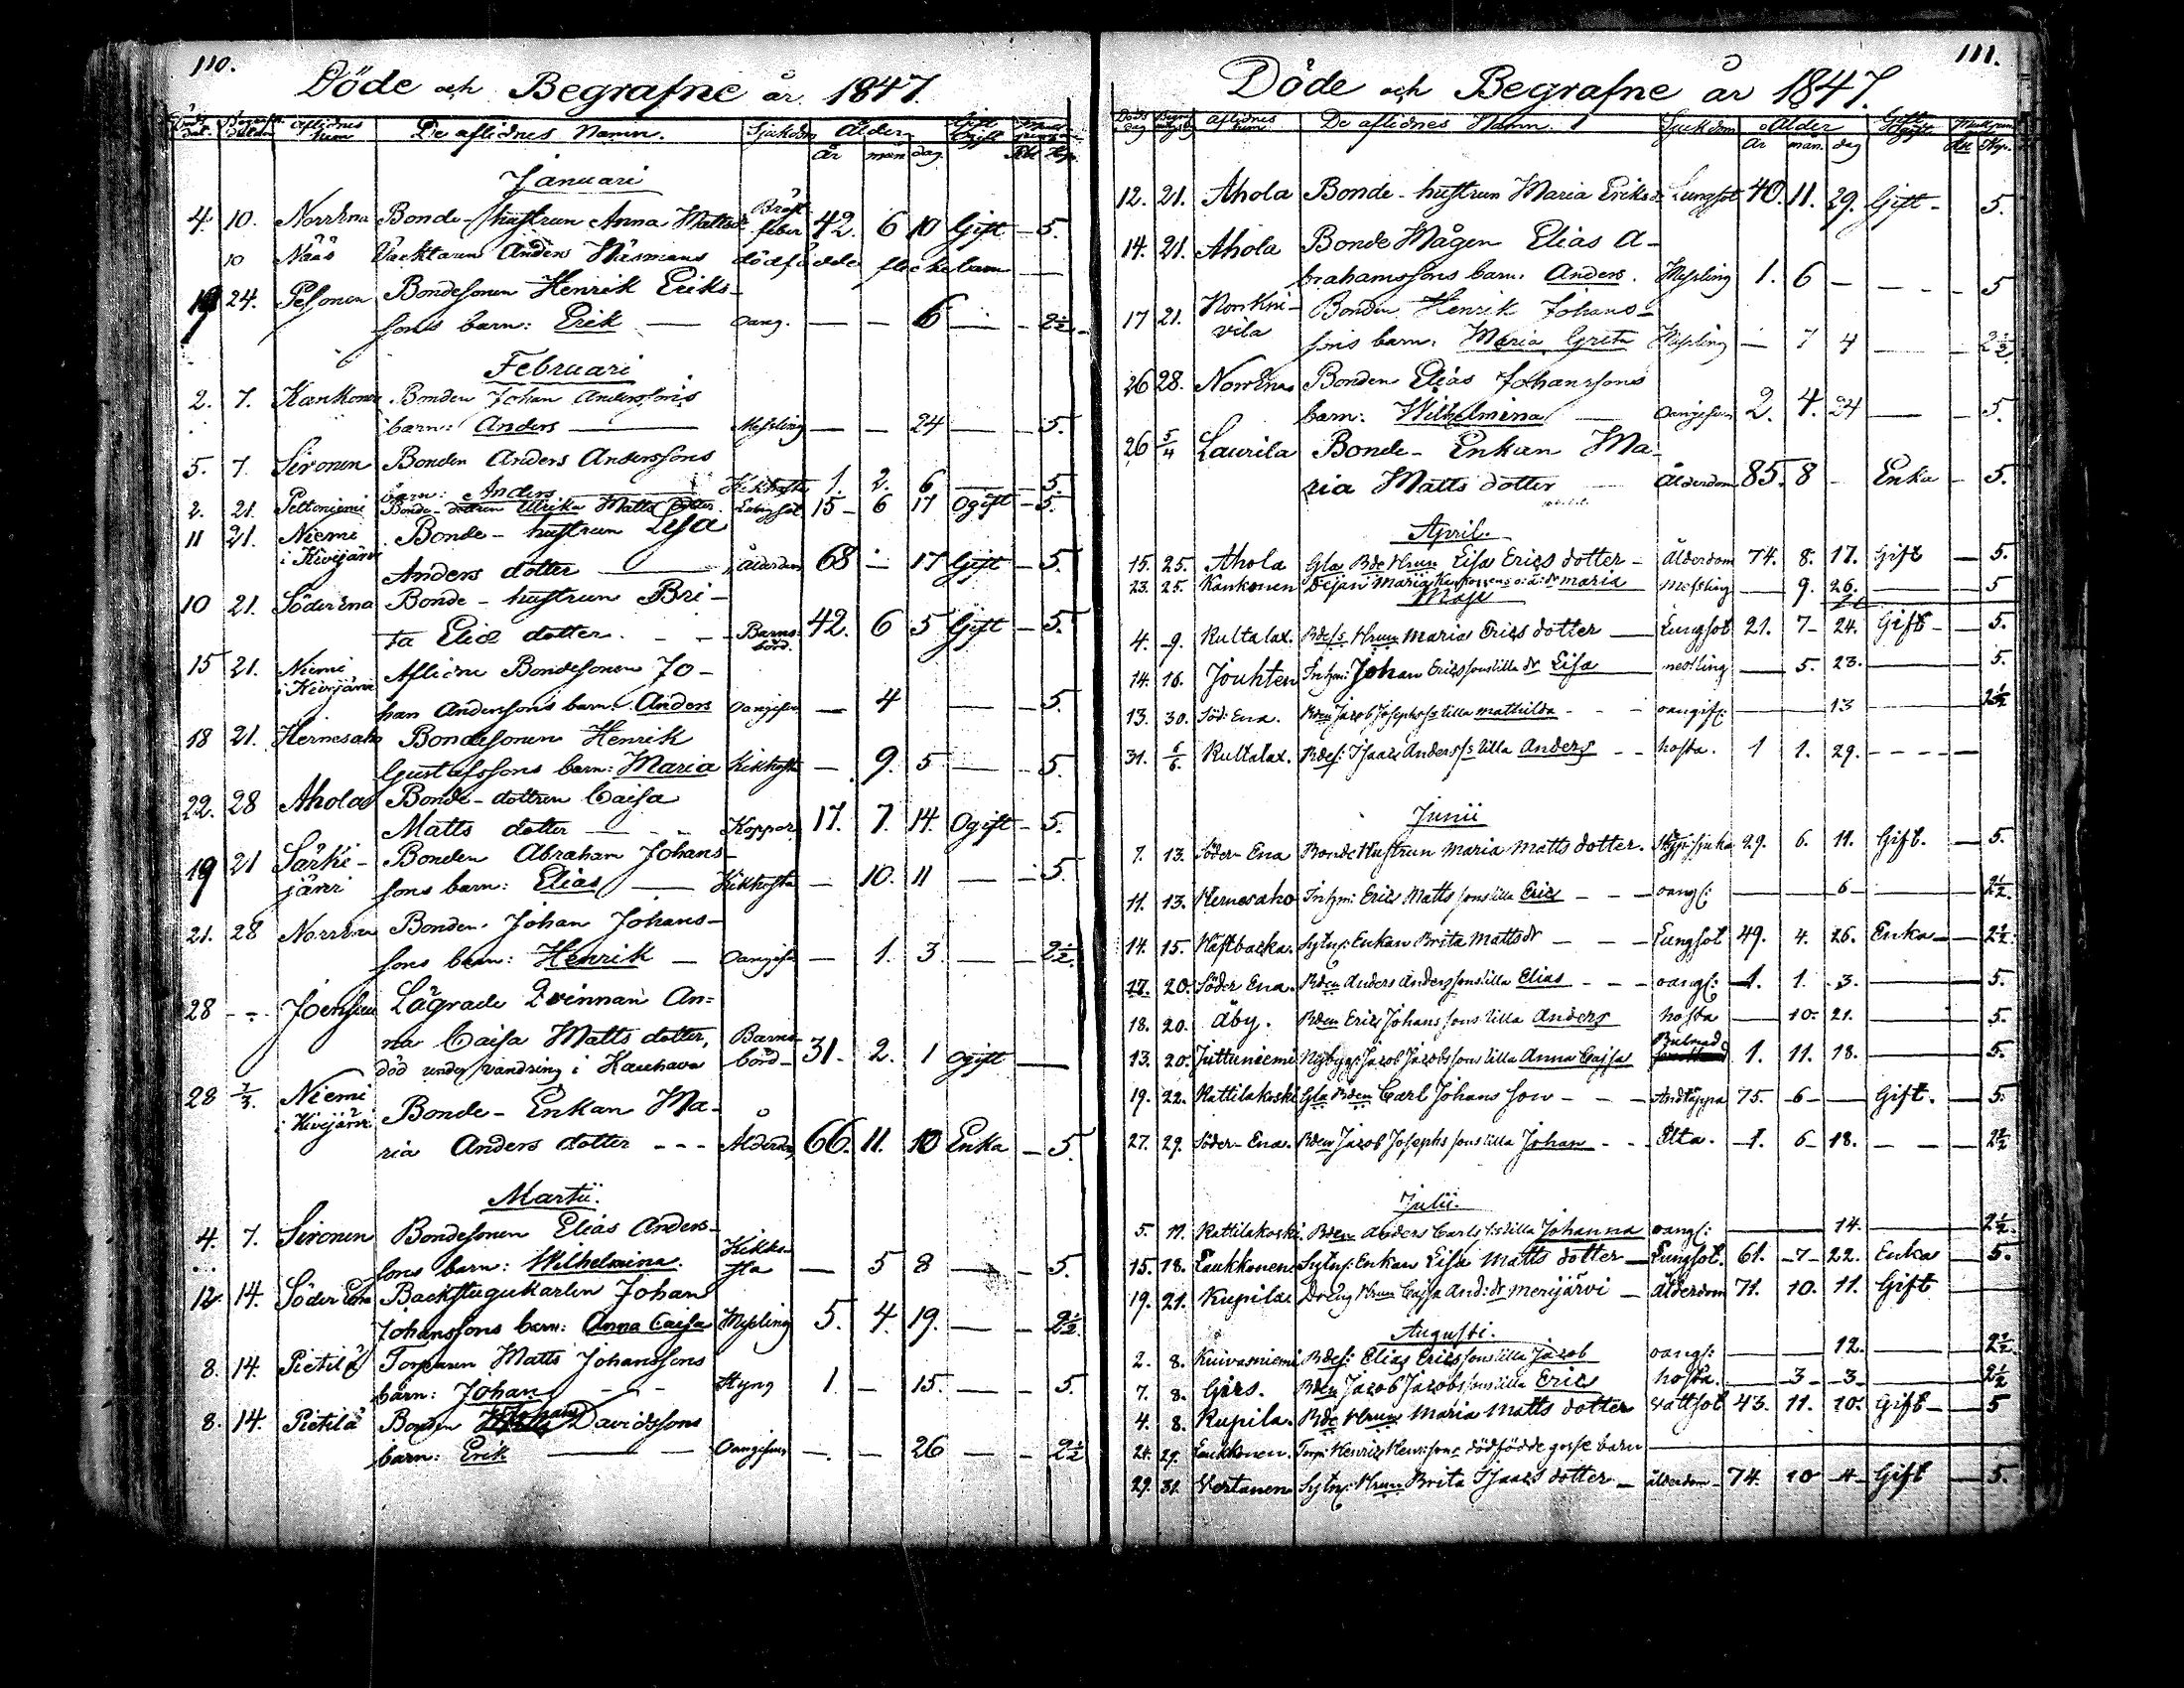 110.
Döde och Begrafne år 1847.
Aflidnes hem De aflidnes Namn. Sjukdom Ålder Gift Ogift
år mån dag
Januari
4. 10. Norrena Bonde-hustrun Anna Mattsdr Bröst feber 42. 6 10 Gift – 5.
10 Nääs Vacktaren Anders Näsmans dödfödde flickebarn —
19 24. Pesonen Bondesonen Henrik Eriks-
sons barn: Erik — oang. — — 6 — – 2½
Februari
2. 7. Kankonen Bonden Johan Anderssons
barn: Anders — Messling — — 24 — – 5.
5. 7. Sironen Bonden Anders Anderssons
barn: Anders Kikhosta 1. 2. 6 — 5.
2. 21. Peltoniemi Bonde-dottren Ulrika Matts dotter. Lungsot 15 – 6 17 Ogift – 5.
11 21. Niemi Bonde-hustrun Lisa
i Kivijärvi Anders dotter — Ålderdom 68 – 17 Gift – 5.
10 21. Söderena Bonde-hustrun Bri-
ta Eliæ dotter. - - Barns-börd. 42. 6 5 Gift – 5.
15 21. Niemi Aflidne Bondesonen Jo-
i Kivijärvi han Anderssons barn: Anders Oangifven — 4 — – 5.
18 21. Hernesaho Bondesonen Henrik
Gustafssons barn: Maria Kikhosta — 9. 5 — – 5.
22. 28 Ahola Bonde-dottren Caisa
Matts dotter — - - Koppor 17. 7. 14. Ogift – 5.
19 21 Särki- Bonden Abraham Johans-
järvi sons barn: Elias — Kikhosta — 10. 11 — – 5.
21. 28 Norrena Bonden Johan Johans-
sons barn: Henrik — Oangifven — 1. 3. — – 2½.
28 - - Joensuu Lägrade Qvinnan An=
na Caisa Matts dotter, Barns-
död under vandring i Kauhava börd – 31. 2. 1 ogift —
28 7/3. Niemi
i Kivijärvi Bonde-Enkan Ma-
ria Anders dotter - - - Ålderdom 66. 11. 10 Enka – 5.
Martii.
4. 7. Sironen Bondesonen Elias Anders-
sons barn: Wilhelmina. Kikho-sta — 5 8 — – 5.
12. 14. Söder Ena Backstugukarlen Johan
Johanssons barn: Anna Caisa Messling 5. 4. 19. — – 2½.
8. 14. Pietilä Torparen Matts Johanssons
barn: Johan - - Styng 1. — 15. — – 5.
8. 14. Pietilä Bonden Johan Davidssons
barn: Erik — Oangifven — — 26 — – 2½
111.
Döde och Begrafne år 1847.
Aflidnes hem De aflidnes Namn. Sjukdom Ålder Gift Ogift
år mån. dag
12. 21. Ahola Bonde-hustrun Maria Eriksdr Lungsot 40. 11. 29. Gift – 5.
14. 21. Ahola Bonde Mågen Elias A-
brahamssons barn: Anders. Messling 1. 6 — - - - 5
17 21. Honkni- Bonden Henrik Johans-
vila sons barn: Maria Greta Messling — 7 4 — – 2½.
26 28. Norrena Bonden Elias Johanssons
barn: Wilhelmina — Oangifven 2. 4. 24 — – 5.
26 5/4 Laurila Bonde-Enkan Ma-
ria Matts dotter — Ålderdom 85. 8 - Enka – 5.
April.
15. 25. Ahola Gla Bde Hrun Lisa Erics dotter – Ålderdom 74. 8. 17. Gift – 5.
23. 25. Kankonen Pigan Maria Kankonens o: ä: dr maria messling — 9. 26. — 5
Maji
4. 9. Kultalax. Bdes: Hrun Maria Erics dotter — Lungsot 21. 7 – 24. Gift – – 5.
14. 16. Jouhten Inhm: Johan Ericssons lilla dr Lisa messling — 5. 23. — 5.
13. 30. Söd: Ena. Bden Jacob Josephs s:s lilla mathilda - - - oangif: — 13 2½
31. 6/6. Kultalax. Bdes: Isaac Anderss:s lilla Anders - - hosta. 1 1. 29. - - - -
Junii
7. 13. Söder-Ena Bonde Hustrun Maria Matts dotter. 29. 6. 11. Gift. – 5.
11. 13. Hernesaho Inhm: Erics Matts sons lilla Eric - - - oangf: — 6 — 2½.
14. 15. Käftbacka. Sytn: Enkan Brita Mattsdr - - - Lungsot 49. 4. 26. Enka – 2½.
17. 20. Söder Ena. Bden Anders Anderssons lilla Elias - - - oangf: 1. 1. 3. — 5.
18. 20. Åby. Bden Erics Johans sons lilla Anders hosta — 10. 21. — 5.
13. 20. Juttuniemi Nybygg: Jacob Jacobssons lilla Anna Caisa Bulnad 1. 11. 18. — 5.
19. 22. Kattilakoski Gla Bden Carl Johans son - - - Andtäppa 75. 6 — Gift. – 5.
27. 29. Söder-Ena. Bden Jacob Josephs sons lilla Johan - - Älta. 1. 6 18. - - - 2½
Julii.
5. 11. Kattilakoski. Bden Anders Carls s:s lilla Johanna oangf: — 14. — 2½.
15. 18. Laukkonen Sytn: Enkan Lisa Matts dotter — Lungsot. 61. 7 – 22. Enka – 5.
19. 21. Kupila. Dreng Hrun Cajsa And: dr merijärvi – Ålderdom 71. 10. 11. Gift —
Augusti.
2. 8. Kuivasniemi Bdes: Elias Ericssons lilla Jacob oangf: — 12. — 2½.
7. 8. Gers. Bden Jacob Jacobssons lilla Eric hosta. — 3 – 3 — 2½
4. 8. Kupila. Bde Hrun Maria Matts dotter vattsot 43. 11. 10. Gift – 5
24. 29. Laukkonen. Torp: Henrics Henr:sons dödfödde gosse barn
29. 31. Vertanen Sytn: Hrun Brita Isaacs dotter — ålderdom – 74. 10 4 – Gift – 5.